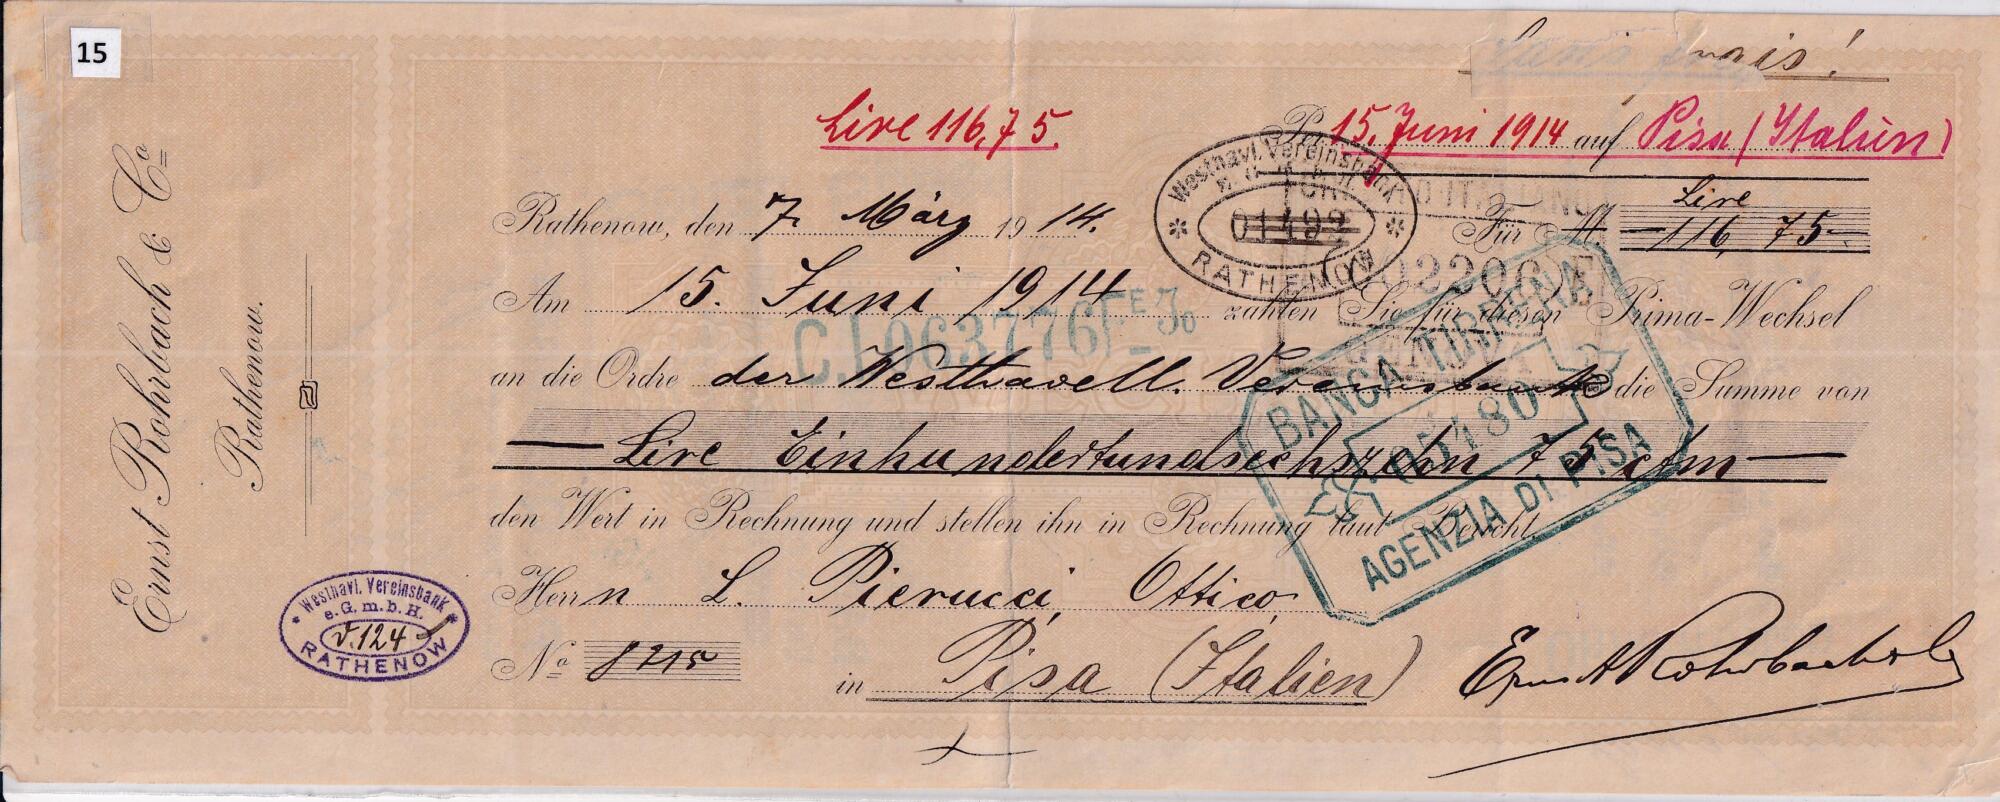 15
Ernst Rohrbach & Co
Rathenow.
frais!
Lire 116,75.
Pr. 15. Juni 1914 auf Pisa (Italien)
Rathenow, den 7. März 1914.
Für M. Lire 116,75
Am 15. Juni 1914 zahlen Sie für diesen Prima-Wechsel
an die Ordre der Westhavell. Vereinsbank die Summe von
Lire Einhundertundsechszehn 75 ctm
den Wert in Rechnung und stellen ihn in Rechnung laut Bericht.
Herrn L. Pierucci, Ottico,
No 8215
in Pisa (Italien)
Ernst Rohrbach & Co
Westhavl. Vereinsbank
01492
RATHENOW
O ITALIANO
02206
C.I.063776
BANCA TIRRENA
05480
AGENZIA DI PISA
Westhavl. Vereinsbank
e.G.m.b.H.
V.124
RATHENOW